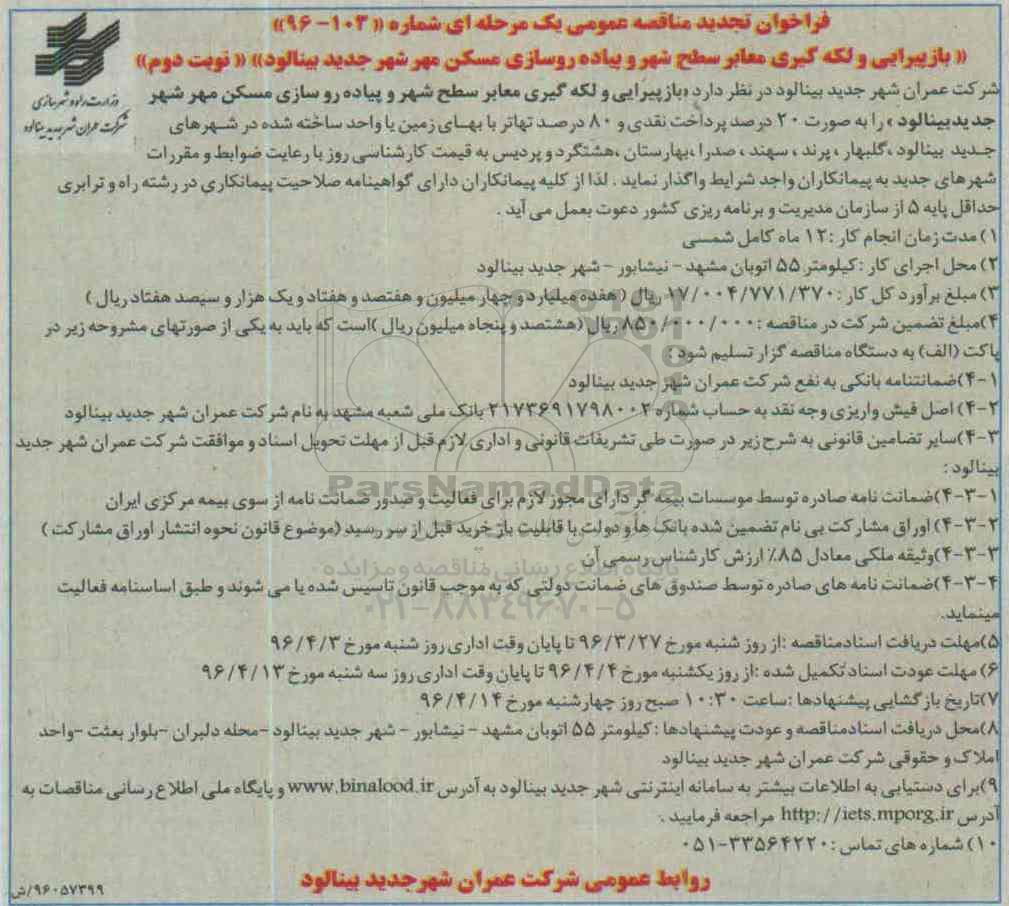 فراخوان تجدید مناقصه عمومی یک مرحله ای شماره « ۱۰۳- ۹۶»
« بازپیرایی و لکه گیری معابر سطح شهر و پیاده روسازی مسکن مهر شهر جدید بینالود» « نوبت دوم»
وزارت راه و شهرسازی
شرکت عمران شهر جدید بینالود
شرکت عمران شهر جدید بینالود در نظر دارد «بازپیرایی و لکه گیری معابر سطح شهر و پیاده رو سازی مسکن مهر شهر
جدید بینالود » را به صورت ۲۰ درصد پرداخت نقدی و ۸۰ درصد تهاتر با بهـای زمین یا واحد ساخته شده در شـهرهای
جـدید بینالود ،گلبهار ، پرند ، سهند ، صدرا ،بهارستان ،هشتگرد و پردیس به قیمت کارشناسی روز با رعایت ضوابط و مقررات
شهرهای جدید به پیمانکاران واجد شرایط واگذار نماید . لذا از کلیه پیمانکاران دارای گواهینامه صلاحیت پیمانکاری در رشته راه و ترابری
حداقل پایه ۵ از سازمان مدیریت و برنامه ریزی کشور دعوت بعمل می آید .
۱) مدت زمان انجام کار :۱۲ ماه کامل شمسی
۲) محل اجرای کار :کیلومتر ۵۵ اتوبان مشهد - نیشابور - شهر جدید بینالود
۳) مبلغ برآورد کل کار :۱۷/۰۰۴/۷۷۱/۳۷۰ ریال ( هفده میلیارد و چهار میلیون و هفتصد و هفتاد و یک هزار و سیصد هفتاد ریال )
۴)مبلغ تضمین شرکت در مناقصه :۸۵۰/۰۰۰/۰۰۰ ریال (هشتصد و پنجاه میلیون ریال )است که باید به یکی از صورتهای مشروحه زیر در
پاکت (الف) به دستگاه مناقصه گزار تسلیم شود :
۴-۱)ضمانتنامه بانکی به نفع شرکت عمران شهر جدید بینالود
۴-۲) اصل فیش واریزی وجه نقد به حساب شماره ۲۱۷۳۶۹۱۷۹۸۰۰۲ بانک ملی شعبه مشهد به نام شرکت عمران شهر جدید بینالود
۴-۳)سایر تضامین قانونی به شرح زیر در صورت طی تشریفات قانونی و اداری لازم قبل از مهلت تحویل اسناد و موافقت شرکت عمران شهر جدید
بینالود :
۴-۳-۱)ضمانت نامه صادره توسط موسسات بیمه گر دارای مجوز لازم برای فعالیت و صدور ضمانت نامه از سوی بیمه مرکزی ایران
۴-۳-۲) اوراق مشارکت بی نام تضمین شده بانک ها و دولت با قابلیت باز خرید قبل از سر رسید (موضوع قانون نحوه انتشار اوراق مشارکت )
۴-۳-۳)وثیقه ملکی معادل ۸۵٪ ارزش کارشناس رسمی آن
۴-۳-۴)ضمانت نامه های صادره توسط صندوق های ضمانت دولتی که به موجب قانون تاسیس شده یا می شوند و طبق اساسنامه فعالیت
مینماید.
۵)مهلت دریافت اسناد مناقصه :از روز شنبه مورخ ۹۶/۳/۲۷ تا پایان وقت اداری روز شنبه مورخ ۹۶/۴/۳
۶) مهلت عودت اسناد تکمیل شده :از روز یکشنبه مورخ ۹۶/۴/۴ تا پایان وقت اداری روز سه شنبه مورخ ۹۶/۴/۱۳
۷)تاریخ بازگشایی پیشنهادها :ساعت ۱۰:۳۰ صبح روز چهارشنبه مورخ ۹۶/۴/۱۴
۸)محل دریافت اسناد مناقصه و عودت پیشنهادها :کیلومتر ۵۵ اتوبان مشهد - نیشابور - شهر جدید بینالود -محله دلبران -بلوار بعثت -واحد
املاک و حقوقی شرکت عمران شهر جدید بینالود
۹)برای دستیابی به اطلاعات بیشتر به سامانه اینترنتی شهر جدید بینالود به آدرس www.binalood.ir و پایگاه ملی اطلاع رسانی مناقصات به
آدرس http://iets.mporg.ir مراجعه فرمایید .
۱۰) شماره های تماس :۳۳۵۶۴۲۲۰-۰۵۱
روابط عمومی شرکت عمران شهر جدید بینالود
۹۶۰۵۷۳۹۹/ش
ParsNamadData
پایگاه اطلاع رسانی مناقصه و مزایده
۰۲۱-۸۸۳۴۹۶۷۰-۵